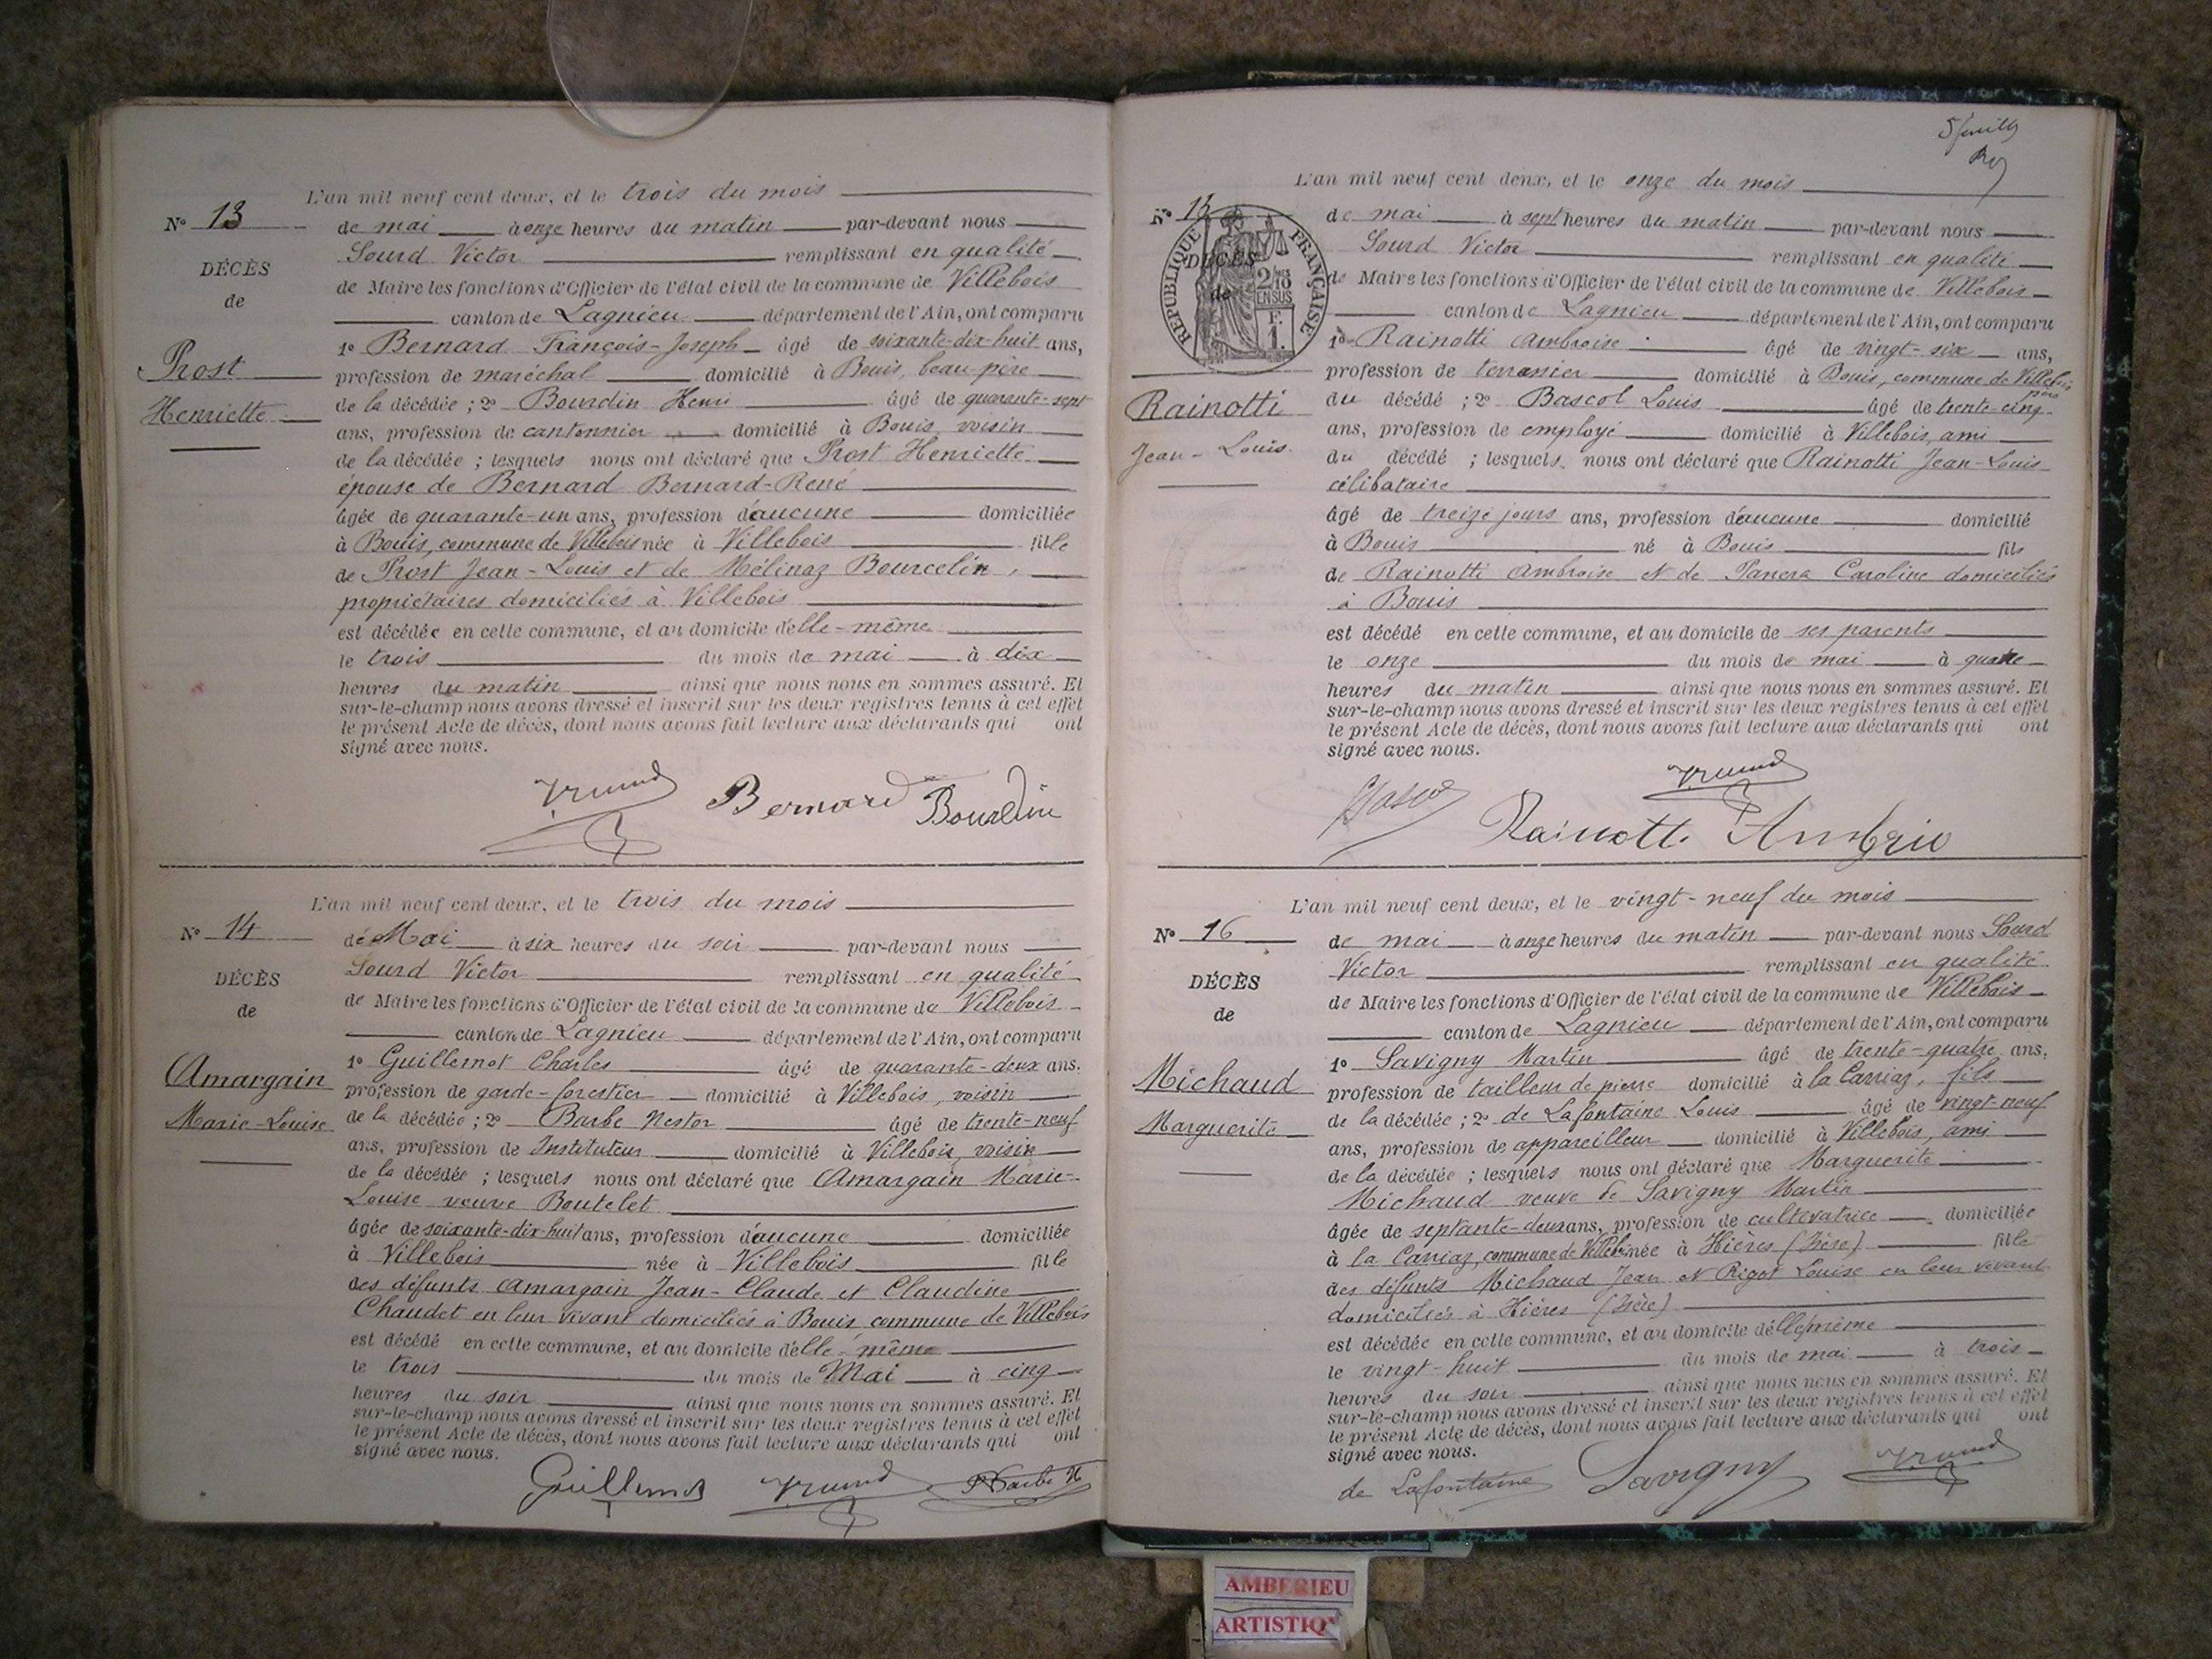 L'an mil neuf cent deux, et le trois du mois
N° 13
de mai à onze heures du matin par-devant nous
DÉCÈS
Sourd Victor remplissant en qualité
de
de Maire les fonctions d'Officier de l'état civil de la commune de Villebois
canton de Lagnieu département de l'Ain, ont comparu
Prost
1° Bernard François-Joseph âgé de soixante-dix-huit ans,
profession de maréchal domicilié à Bouis, beau-père
Henriette
de la décédée ; 2° Bourdin Henri âgé de quarante-sept
ans, profession de cantonnier domicilié à Bouis, voisin
de la décédée ; lesquels nous ont déclaré que Prost Henriette
épouse de Bernard Bernard-René
âgée de quarante-un ans, profession d'aucune domiciliée
à Bouis, commune de Villebois née à Villebois fille
de Prost Jean-Louis et de Mélinaz Bourcelin,
propriétaires domiciliés à Villebois
est décédée en cette commune, et au domicile d'elle-même
le trois du mois de mai à dix
heures du matin ainsi que nous nous en sommes assuré. Et
sur-le-champ nous avons dressé et inscrit sur les deux registres tenus à cet effet
le présent Acte de décès, dont nous avons fait lecture aux déclarants qui ont
signé avec nous.
Bernard Bourdin
L'an mil neuf cent deux, et le trois du mois
N° 14
de Mai à six heures du soir par-devant nous
DÉCÈS
Sourd Victor remplissant en qualité
de
de Maire les fonctions d'Officier de l'état civil de la commune de Villebois
canton de Lagnieu département de l'Ain, ont comparu
Amargain
1° Guillemot Charles âgé de quarante-deux ans.
profession de garde-forestier domicilié à Villebois, voisin
Marie-Louise
de la décédée ; 2° Barbe Nestor âgé de trente-neuf
ans, profession de Instituteur domicilié à Villebois, voisin
de la décédée ; lesquels nous ont déclaré que Amargain Marie-
Louise veuve Boutelet
âgée de soixante-dix-huit ans, profession d'aucune domiciliée
à Villebois née à Villebois fille
des défunts Amargain Jean-Claude et Claudine
Chaudet en leur vivant domiciliés à Bouis commune de Villebois
est décédé en cette commune, et au domicile d'elle-même
le trois du mois de Mai à cinq
heures du soir ainsi que nous nous en sommes assuré. Et
sur-le-champ nous avons dressé et inscrit sur les deux registres tenus à cet effet
le présent Acte de décès, dont nous avons fait lecture aux déclarants qui ont
signé avec nous.
Guillemot Barbe N
L'an mil neuf cent deux, et le onze du mois
N° 15
de mai à sept heures du matin par-devant nous
DÉCÈS
Sourd Victor remplissant en qualité
de
RÉPUBLIQUE FRANÇAISE
2/10 EN SUS
F. 1.
de Maire les fonctions d'Officier de l'état civil de la commune de Villebois
canton de Lagnieu département de l'Ain, ont comparu
1° Rainotti Ambroise âgé de vingt-six ans,
profession de terrassier domicilié à Bouis, commune de Villebois, père
Rainotti
du décédé ; 2° Bascol Louis âgé de trente-cinq
ans, profession de employé domicilié à Villebois, ami
Jean-Louis
du décédé ; lesquels nous ont déclaré que Rainotti Jean-Louis
célibataire
âgé de treize jours ans, profession d'aucune domicilié
à Bouis né à Bouis fils
de Rainotti Ambroise et de Panera Caroline domiciliés
à Bouis
est décédé en cette commune, et au domicile de ses parents
le onze du mois de mai à quatre
heures du matin ainsi que nous nous en sommes assuré. Et
sur-le-champ nous avons dressé et inscrit sur les deux registres tenus à cet effet
le présent Acte de décès, dont nous avons fait lecture aux déclarants qui ont
signé avec nous.
Rainotti
L'an mil neuf cent deux, et le vingt-neuf du mois
N° 16
de mai à onze heures du matin par-devant nous Sourd
DÉCÈS
Victor remplissant en qualité
de
de Maire les fonctions d'Officier de l'état civil de la commune de Villebois
canton de Lagnieu département de l'Ain, ont comparu
1° Savigny Martin âgé de trente-quatre ans,
Michaud
profession de tailleur de pierre domicilié à la Carriaz, fils
Marguerite
de la décédée ; 2° de Lafontaine Louis âgé de vingt-neuf
ans, profession de appareilleur domicilié à Villebois, ami
de la décédée ; lesquels nous ont déclaré que Marguerite
Michaud veuve de Savigny Martin
âgée de septante-deux ans, profession de cultivatrice domiciliée
à la Carriaz, commune de Villebois née à Hières (Isère) fille
des défunts Michaud Jean et Rigot Louise en leur vivant
domiciliés à Hières (Isère)
est décédée en cette commune, et au domicile d'elle même
le vingt-huit du mois de mai à trois
heures du soir ainsi que nous nous en sommes assuré. Et
sur-le-champ nous avons dressé et inscrit sur les deux registres tenus à cet effet
le présent Acte de décès, dont nous avons fait lecture aux déclarants qui ont
signé avec nous.
de Lafontaine Savigny
AMBERIEU
ARTISTIQ